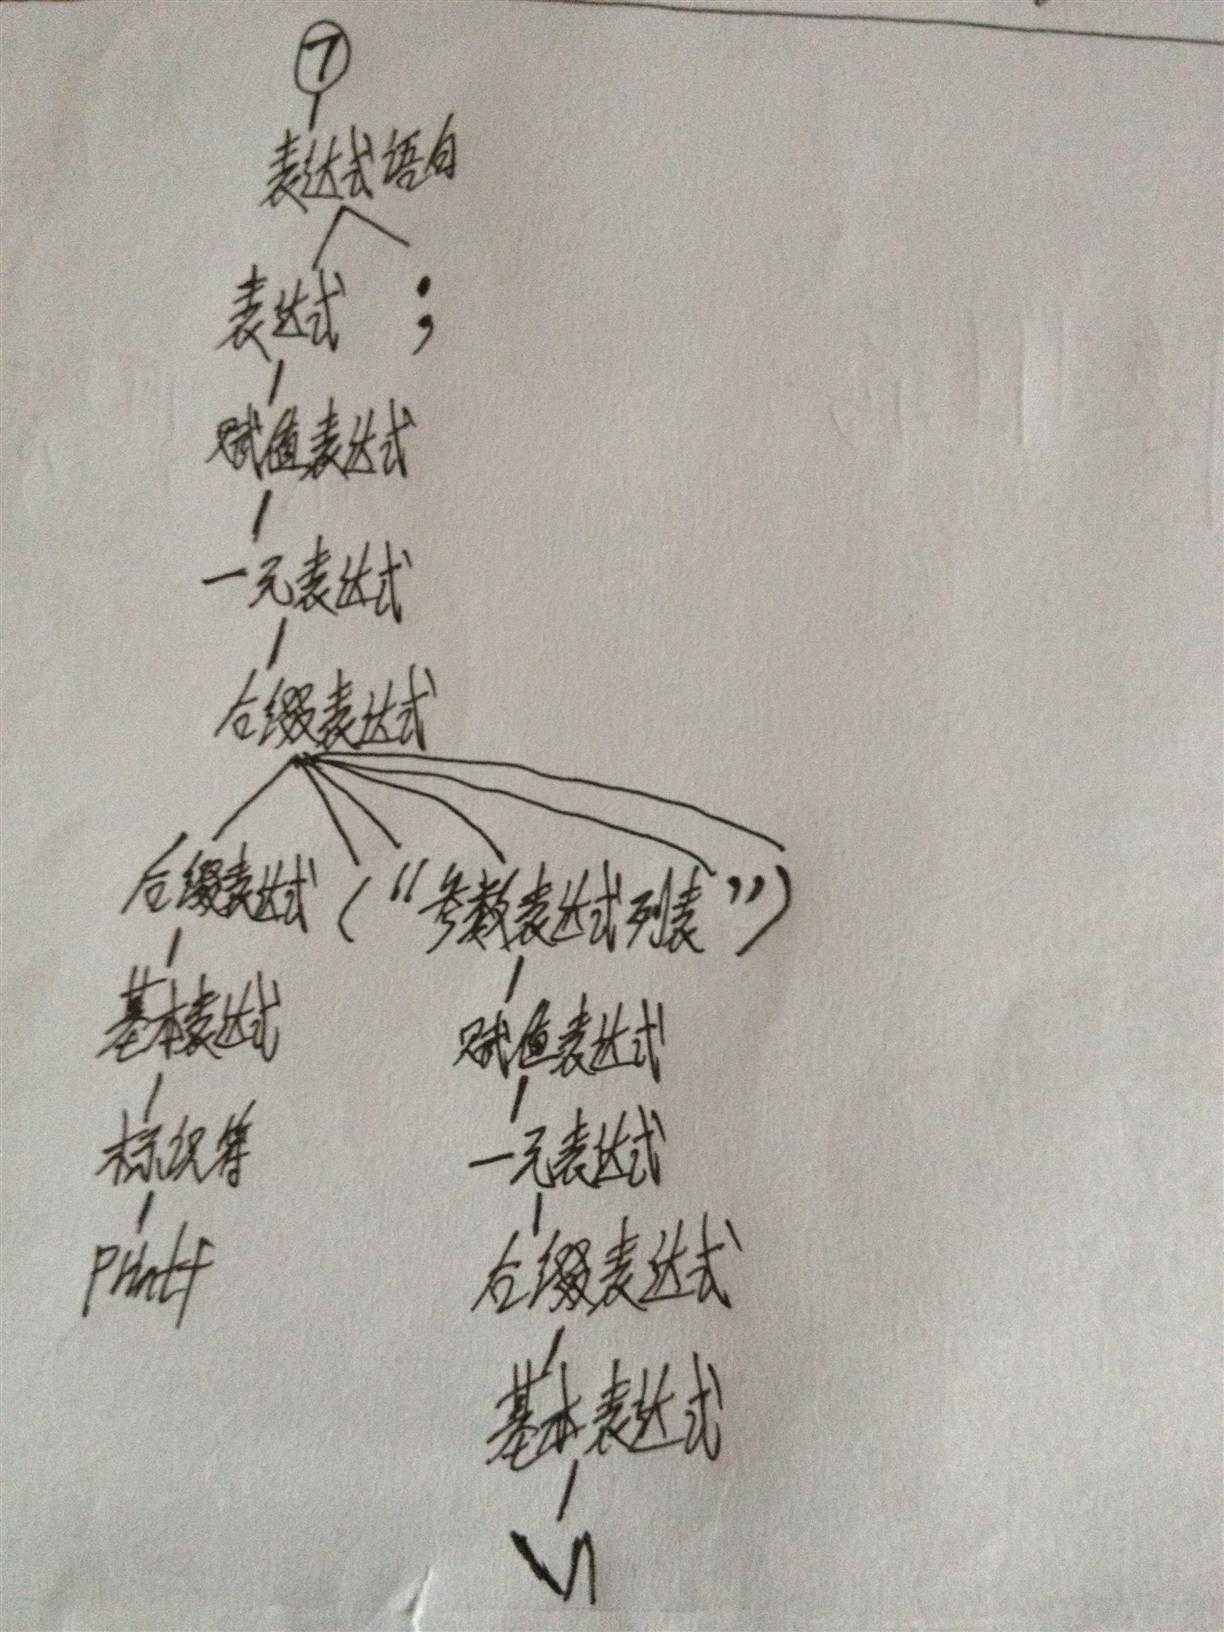 7
表达式语句
表达式 ;
赋值表达式
一元表达式
后缀表达式
后缀表达式 ( “ 参数表达式列表 ” )
基本表达式 赋值表达式
标识符 一元表达式
printf 后缀表达式
基本表达式
\n